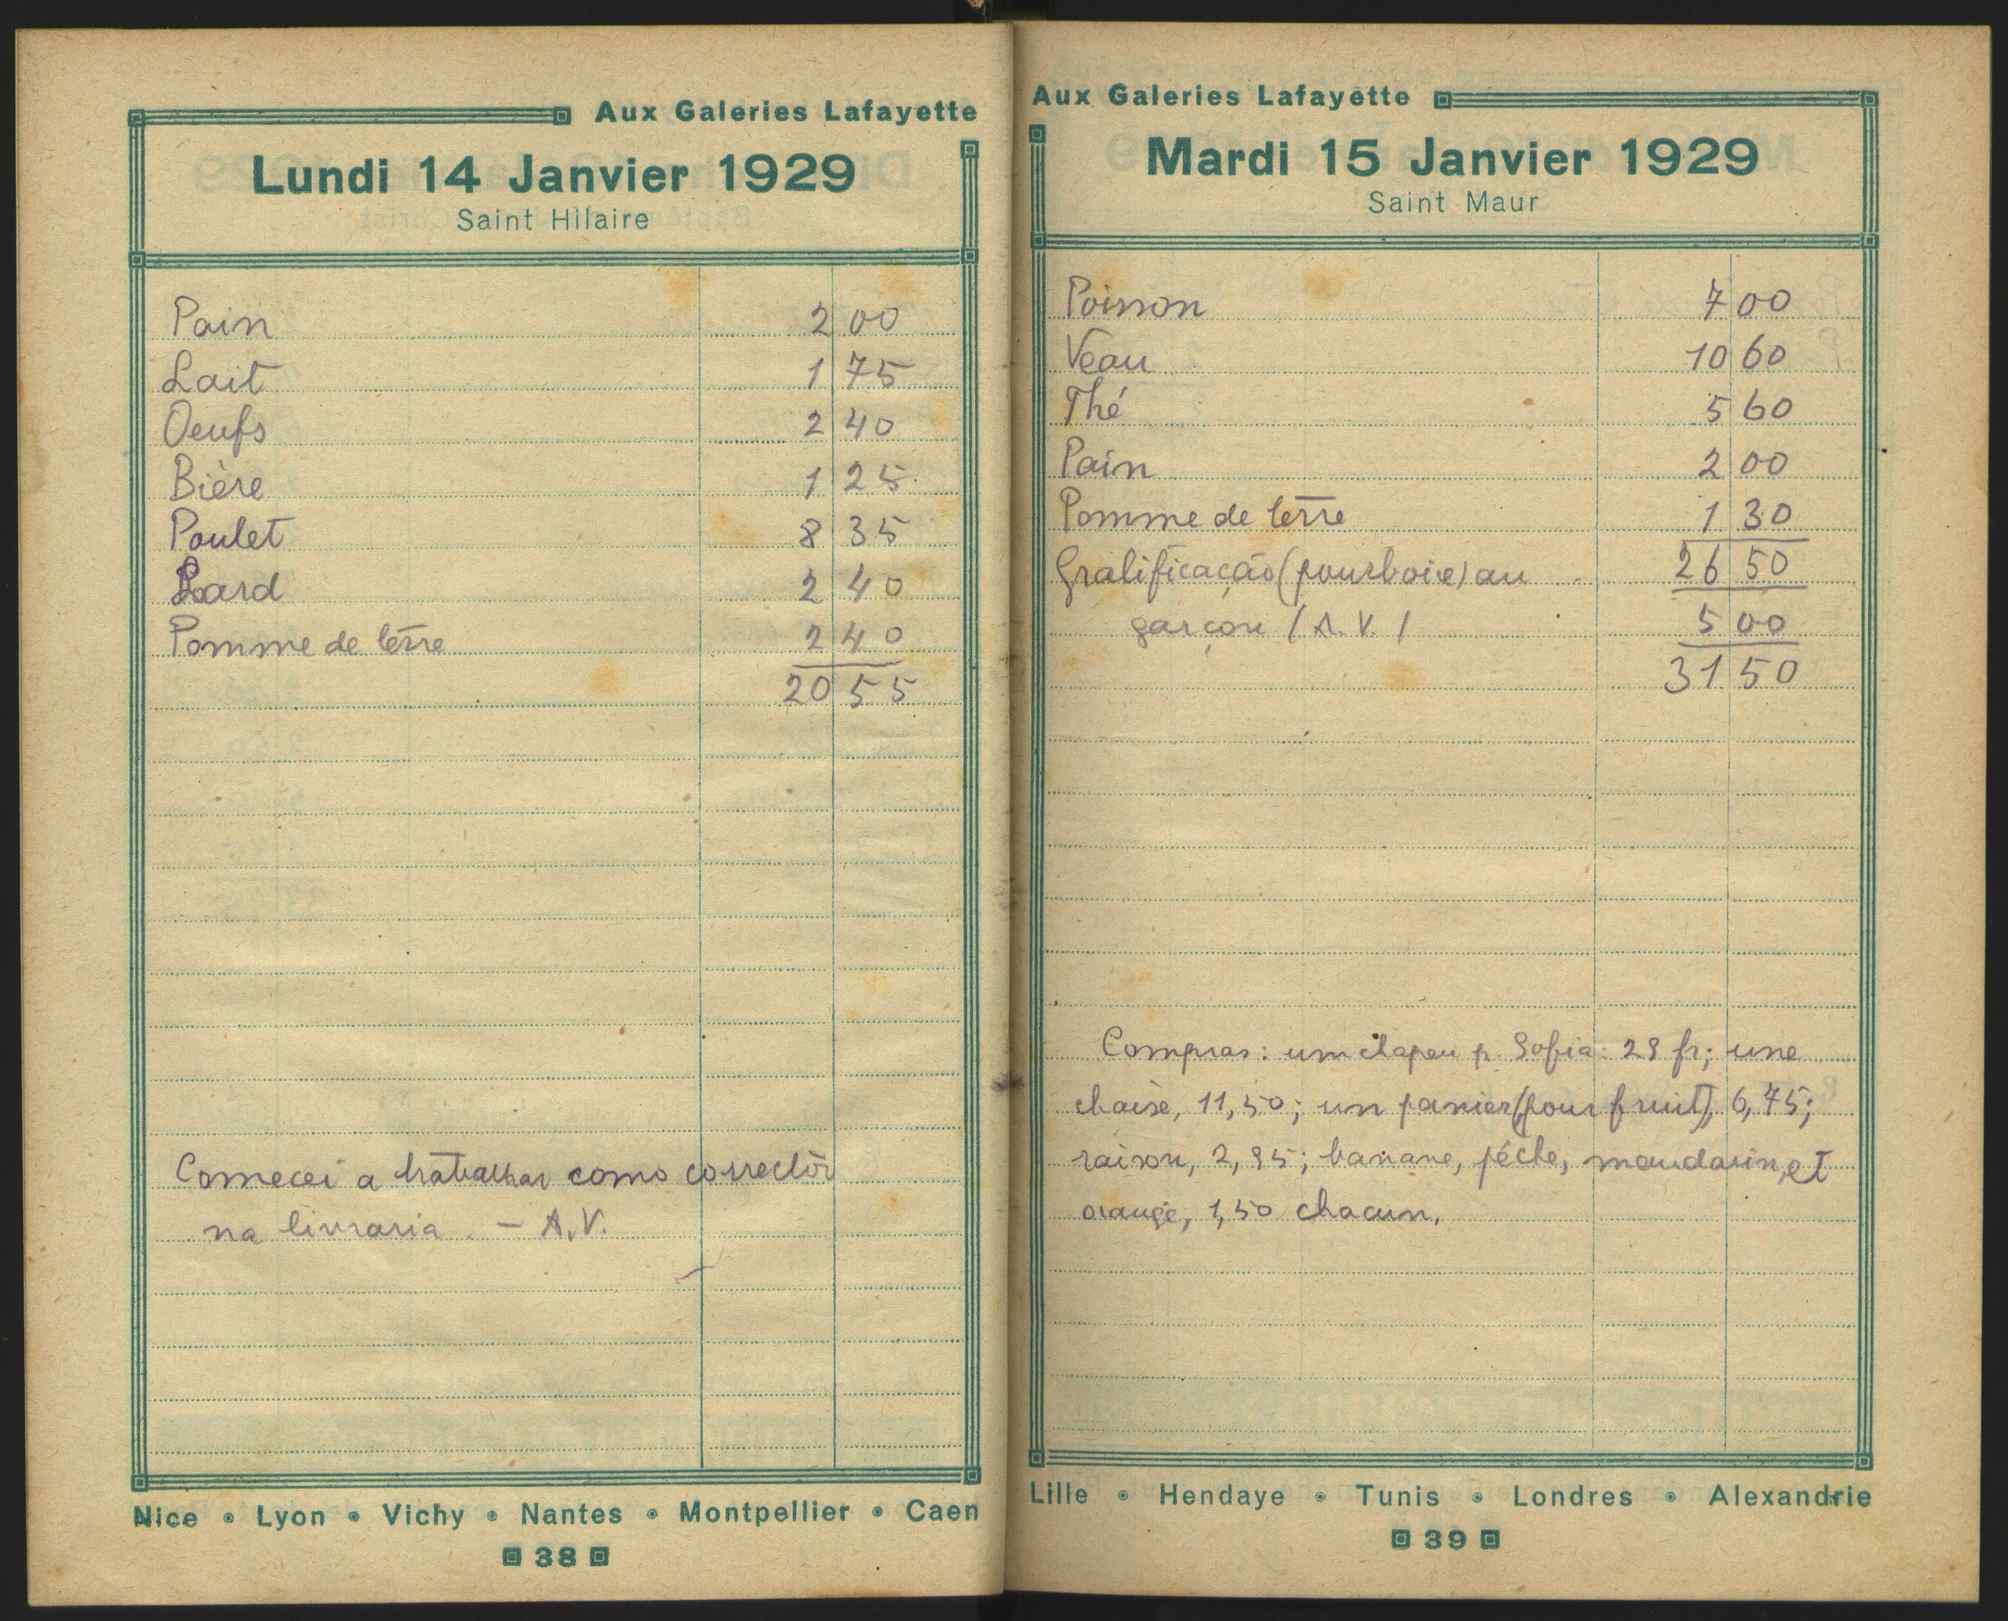 Aux Galeries Lafayette
Lundi 14 Janvier 1929
Saint Hilaire
Pain 2 00
Lait 1 75
Oeufs 2 40
Bière 1 25
Poulet 8 35
Lard 2 40
Pomme de terre 2 40
20 55
Comecei a trabalhar como corrector
na livraria. – A.V.
Nice • Lyon • Vichy • Nantes • Montpellier • Caen
38
Aux Galeries Lafayette
Mardi 15 Janvier 1929
Saint Maur
Poisson 7 00
Veau 10 60
Thé 5 60
Pain 2 00
Pomme de terre 1 30
Gratificação (pourboie) au 26 50
garçon (A.V.) 5 00
31 50
Compras: um chapeu p. Sofia: 29 fr; une
chaise, 11,50; un panier (pour fruit), 6,75;
raison, 2,95; banane, péche, mandarin, et
orange, 1,50 chacun.
Lille • Hendaye • Tunis • Londres • Alexandrie
39